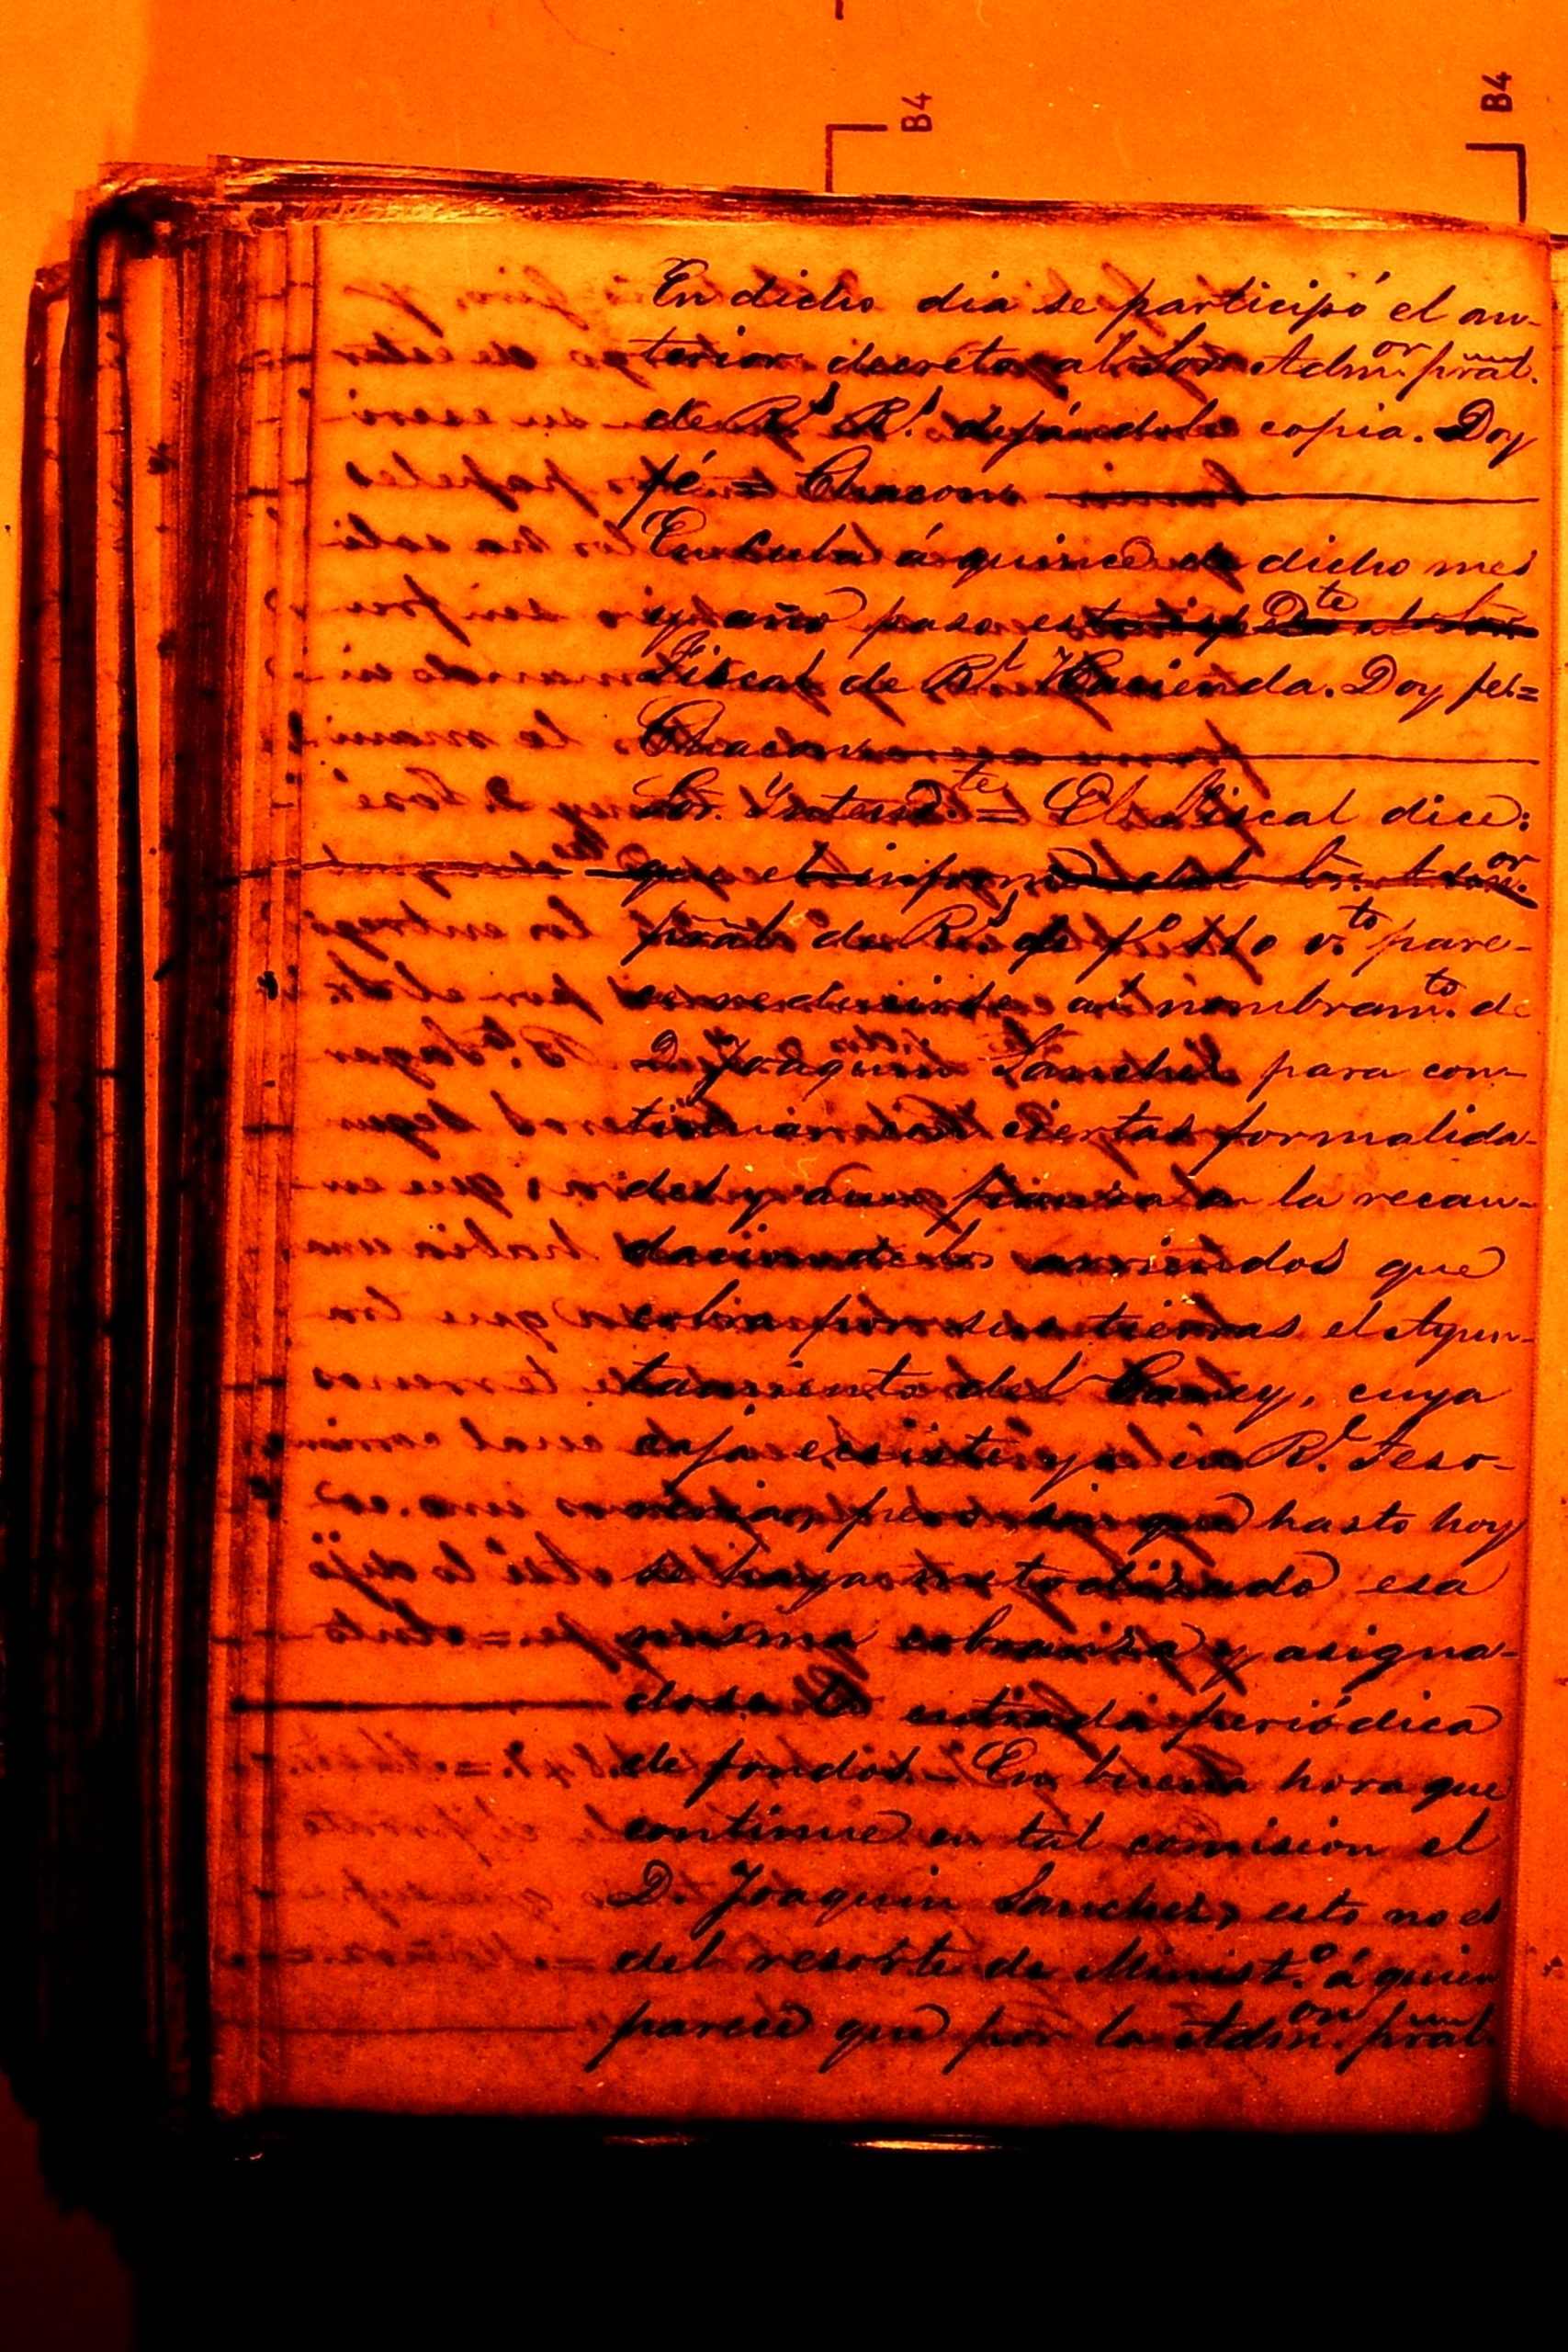 B4
B4
En dicho dia se participó el an-
terior decreto al Sor. Adm.or pral.
de R.s R.s dejándole copia. Doy
fé = Chacon
En Cuba á quince de dicho mes
y año paso este espD.te al Sor.
Fiscal de R.l Hacienda. Doy feé=
Chacon
Sor. Yntend.te = El Fiscal dice:
que el informe del Sor. Adm.or
pral de R.s de f.o 110 v.to pare-
ce reducirse al nombram.to de
D. Joaquin Sanchez para con-
tinuar con ciertas formalida-
des y aun fianza en la recau-
dacion de los arriendos que
cobra por sus tierras el Ayun-
tamiento del Caney, cuya
caja ecsiste ya en R.l Teso-
rería, pero sin que hasta hoy
se haya metodizado esa
misma cobranza y asigna-
dose la entrada periódica
de fondos.= En buena hora que
continue en tal comision el
D. Joaquin Sanchez, esto no es
del resorte de Minist.o á quien
parece que por la Adm.on pral.